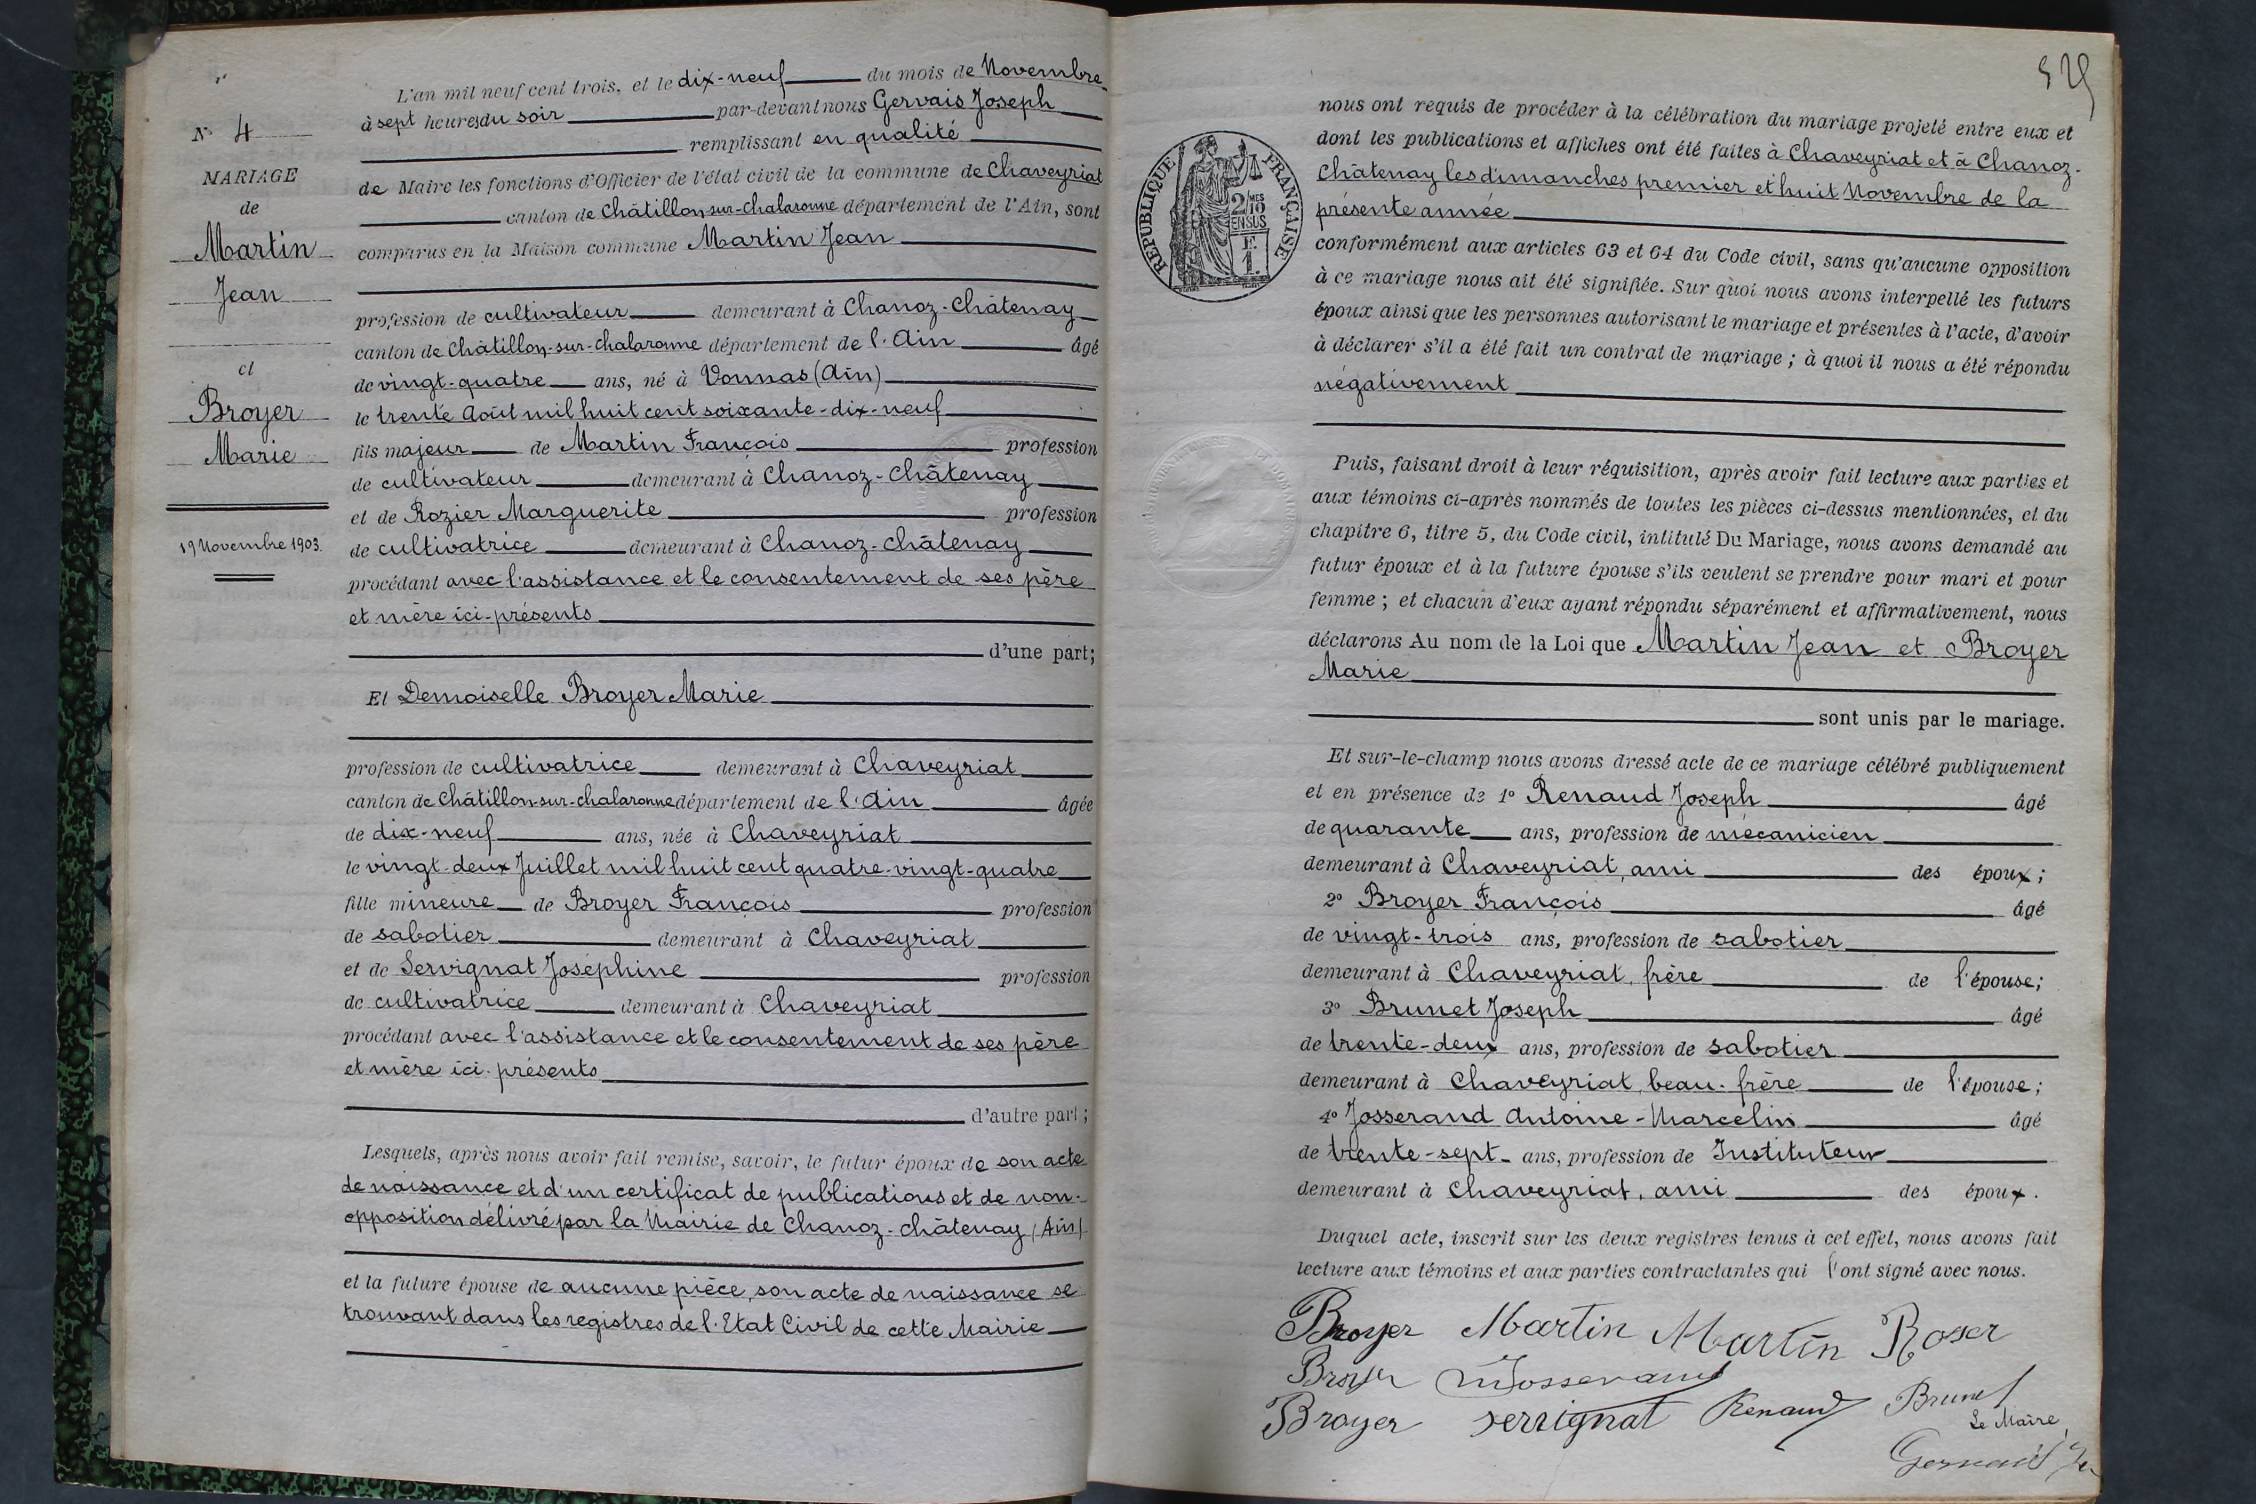 N° 4
MARIAGE
de
Martin
Jean
et
Broyer
Marie
19 Novembre 1903.
L'an mil neuf cent trois, et le dix-neuf du mois de Novembre
à sept heures du soir par-devant nous Gervais Joseph
remplissant en qualité
de Maire les fonctions d'Officier de l'état civil de la commune de Chaveyriat
canton de Châtillon-sur-Chalaronne département de l'Ain, sont
comparus en la Maison commune Martin Jean
profession de cultivateur demeurant à Chanoz-Châtenay
canton de Châtillon-sur-Chalaronne département de l'Ain âgé
de vingt-quatre ans, né à Vonnas (Ain)
le trente Août mil huit cent soixante-dix-neuf
fils majeur de Martin François profession
de cultivateur demeurant à Chanoz-Châtenay
et de Rozier Marguerite profession
de cultivatrice demeurant à Chanoz-Châtenay
procédant avec l'assistance et le consentement de ses père
et mère ici-présents
d'une part;
Et Demoiselle Broyer Marie
profession de cultivatrice demeurant à Chaveyriat
canton de Châtillon-sur-Chalaronne département de l'Ain âgée
de dix-neuf ans, née à Chaveyriat
le vingt-deux Juillet mil huit cent quatre-vingt-quatre
fille mineure de Broyer François profession
de sabotier demeurant à Chaveyriat
et de Servignat Joséphine profession
de cultivatrice demeurant à Chaveyriat
procédant avec l'assistance et le consentement de ses père
et mère ici-présents
d'autre part;
Lesquels, après nous avoir fait remise, savoir, le futur époux de son acte
de naissance et d'un certificat de publications et de non-
opposition délivré par la Mairie de Chanoz-Châtenay (Ain)
et la future épouse de aucune pièce, son acte de naissance se
trouvant dans les registres de l'Etat Civil de cette Mairie
529
RÉPUBLIQUE FRANÇAISE
2/10 MES
EN SUS
F.
1.
nous ont requis de procéder à la célébration du mariage projeté entre eux et
dont les publications et affiches ont été faites à Chaveyriat et à Chanoz-
Châtenay les dimanches premier et huit Novembre de la
présente année
conformément aux articles 63 et 64 du Code civil, sans qu'aucune opposition
à ce mariage nous ait été signifiée. Sur quoi nous avons interpellé les futurs
époux ainsi que les personnes autorisant le mariage et présentes à l'acte, d'avoir
à déclarer s'il a été fait un contrat de mariage ; à quoi il nous a été répondu
négativement
Puis, faisant droit à leur réquisition, après avoir fait lecture aux parties et
aux témoins ci-après nommés de toutes les pièces ci-dessus mentionnées, et du
chapitre 6, titre 5, du Code civil, intitulé Du Mariage, nous avons demandé au
futur époux et à la future épouse s'ils veulent se prendre pour mari et pour
femme ; et chacun d'eux ayant répondu séparément et affirmativement, nous
déclarons Au nom de la Loi que Martin Jean et Broyer
Marie
sont unis par le mariage.
Et sur-le-champ nous avons dressé acte de ce mariage célébré publiquement
et en présence de 1° Renaud Joseph âgé
de quarante ans, profession de mécanicien
demeurant à Chaveyriat, ami des époux ;
2° Broyer François âgé
de vingt-trois ans, profession de sabotier
demeurant à Chaveyriat, frère de l'épouse;
3° Brunet Joseph âgé
de trente-deux ans, profession de sabotier
demeurant à Chaveyriat, beau-frère de l'épouse ;
4° Josserand Antoine-Marcelin âgé
de trente-sept ans, profession de Instituteur
demeurant à Chaveyriat, ami des époux.
Duquel acte, inscrit sur les deux registres tenus à cet effet, nous avons fait
lecture aux témoins et aux parties contractantes qui l'ont signé avec nous.
Broyer Martin Martin Roser
Broyer Josserand
Broyer Servignat Renaud Brunet
Le Maire,
Gervais